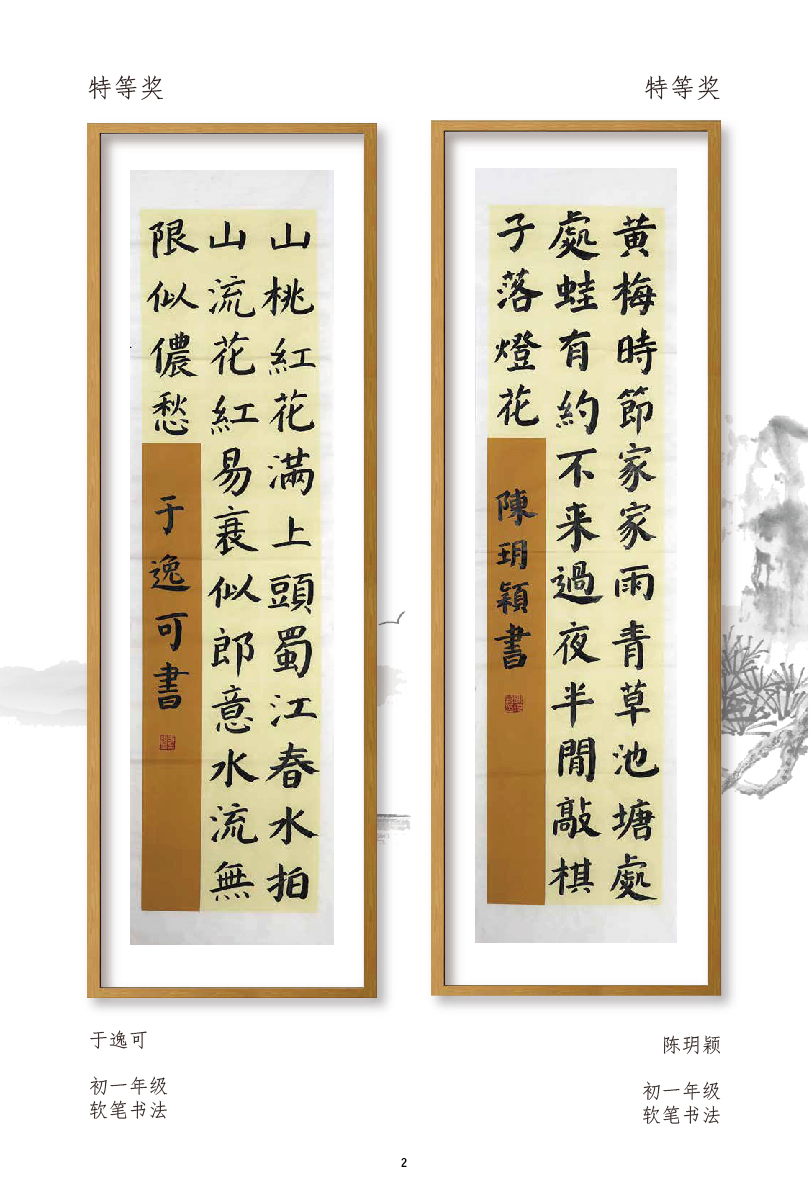 特等奖
山桃紅花滿上頭蜀江春水拍
山流花紅易衰似郎意水流無
限似儂愁
于逸可書
于逸可
初一年级
软笔书法
特等奖
黄梅時節家家雨青草池塘處
處蛙有約不来過夜半閒敲棋
子落燈花
陳玥穎書
陈玥颖
初一年级
软笔书法
2